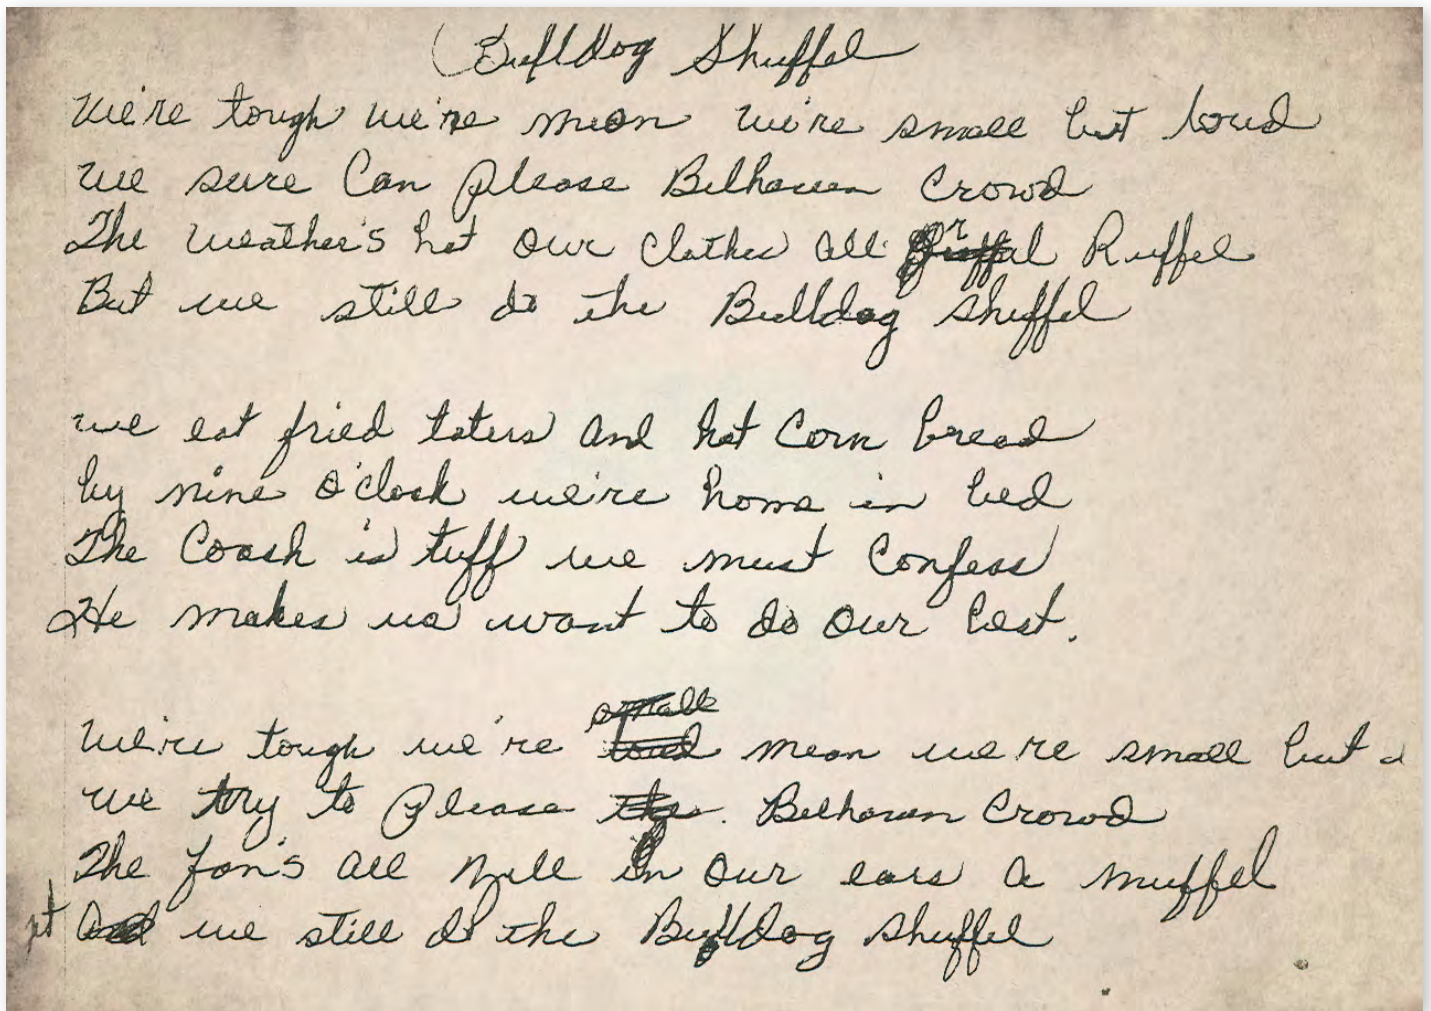 (Bulldog Shuffel
We're tough we're mean we're small but loud
we sure Can please Belhaven Crowd
The weather's hot our clothes all Ruffel
But we still do the Bulldog Shuffel
we eat fried taters and hot Corn bread
by nine o'clock we're home in bed
The Coach is tuff we must Confess
He makes us want to do our best.
small
We're tough we're loud mean we're small but
we try to please the. Belhaven Crowd
The fan's all yell in our ears a muffel
yet and we still do the Bulldog Shuffel